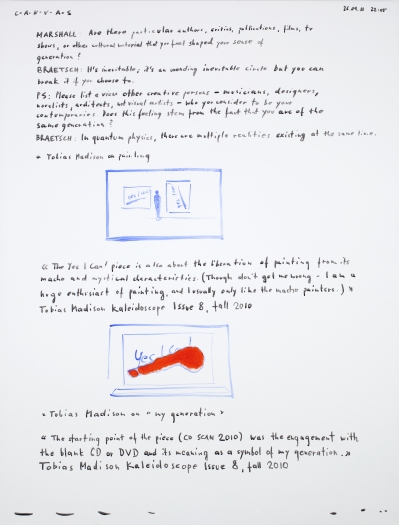 C-A-N-V-A-S
MARSHALL: Are there particular authors, critics, publications, films, tv
shows, or other cultural material that you feel shaped your sense of
generation?
BRAETSCH: It's inevitable; it's an unending inevitable circle but you can
break it if you choose to.
PS: Please list a view other creative persons – musicians, designers,
novelists, architects, not visual artists – who you consider to be your
contemporaries. Does this feeling stem from the fact that you are of the
same generation?
BRAETSCH: In quantum physics, there are multiple realities existing at the same time.
* Tobias Madison on painting
yes I can!
« The Yes I Can! piece is also about the liberation of painting from its
macho and mystical characteristics. (Though don't get me wrong – I am a
huge enthusiast of painting, and usually only like the macho painters.) »
Tobias Madison Kaleidoscope Issue 8, fall 2010
Yes I Can!
* Tobias Madison on "my generation"
« The starting point of the piece (CD SCAN 2010) was the engagement with
the blank CD or DVD and its meaning as a symbol of my generation.»
Tobias Madison Kaleidoscope Issue 8, fall 2010